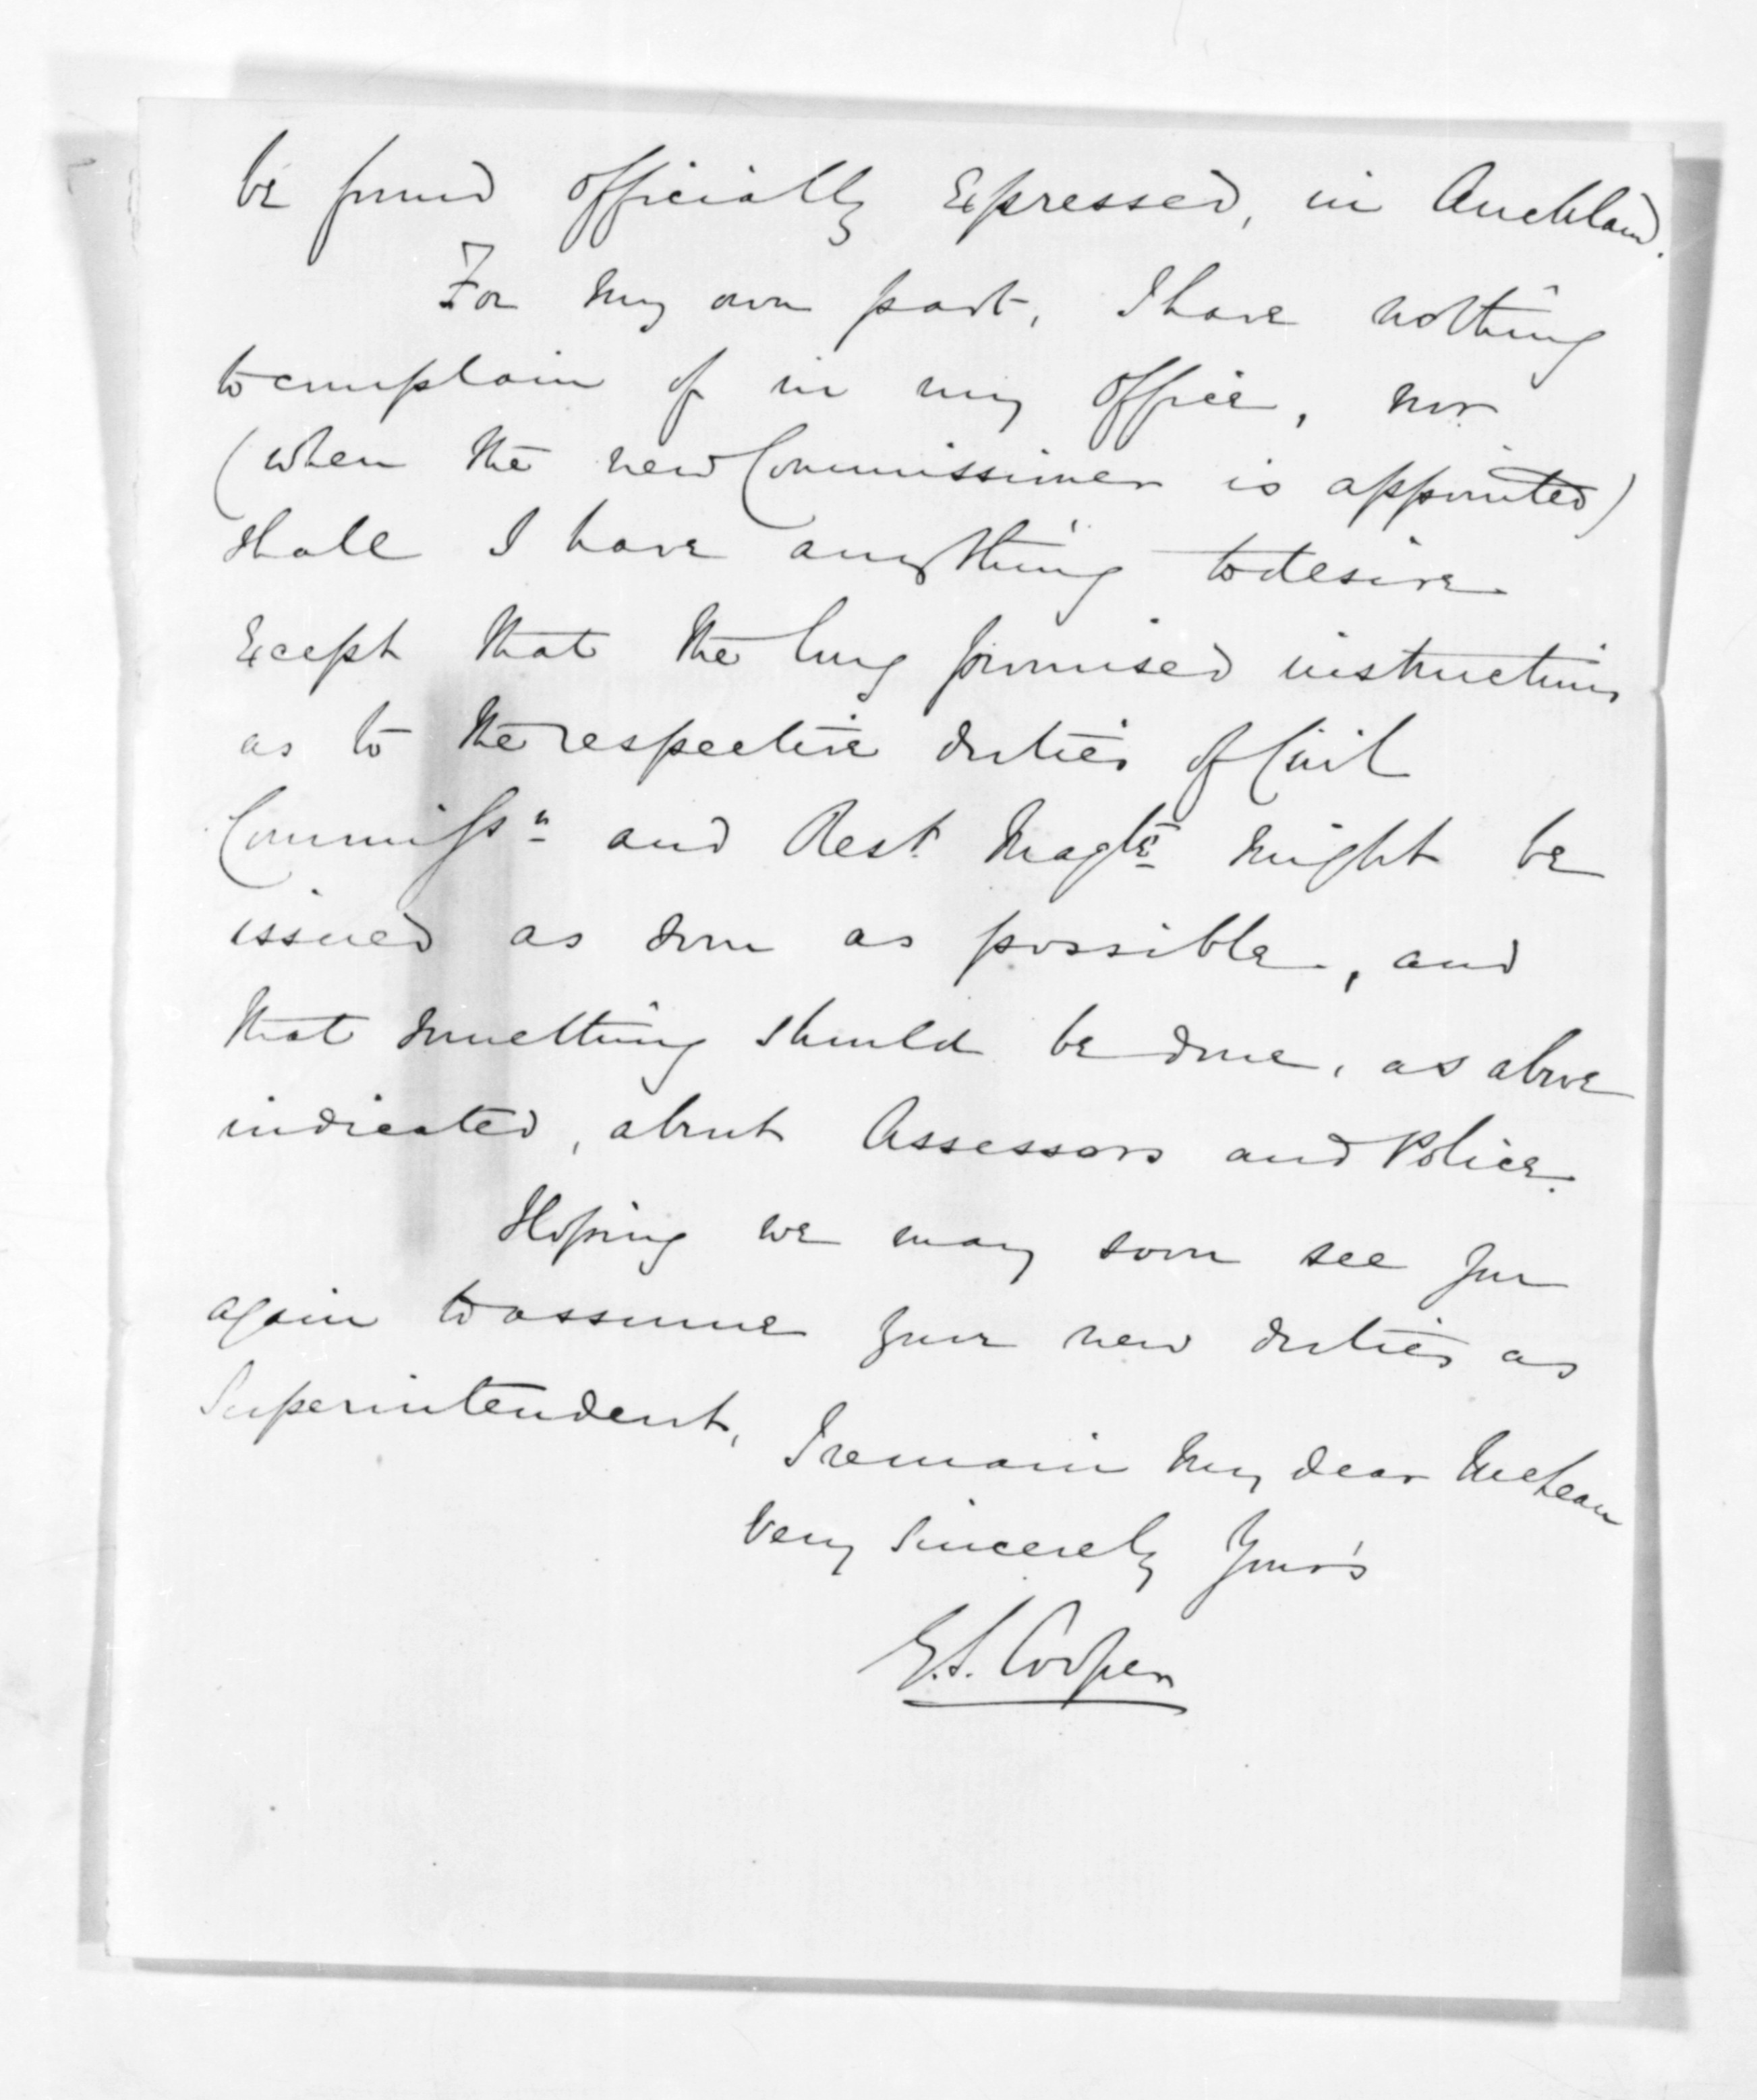 be found officially expressed, in Auckland.
For my own part, I have nothing
to complain of in my office, nor
(when the new Commissioner is appointed)
shall I have anything to desire
except that the long promised instructions
as to the respective duties of Civil
Commissr and Rest. Magte might be
issued as soon as possible, and
that something should be done, as above
indicated, about Assessors and Police.
Hoping we may soon see you
again to assume your new duties as
Superintendent,
I remain My dear McLean
Very Sincerely Yours
G.S. Cooper